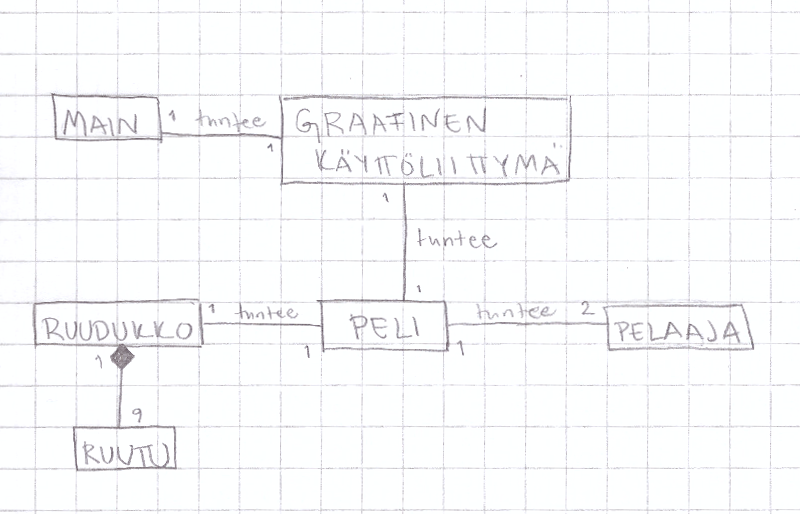 MAIN
1 tuntee
1
GRAAFINEN
KÄYTTÖLIITTYMÄ
1
tuntee
1
RUUDUKKO
1 tuntee
1
PELI
tuntee 2
1
PELAAJA
1
9
RUUTU